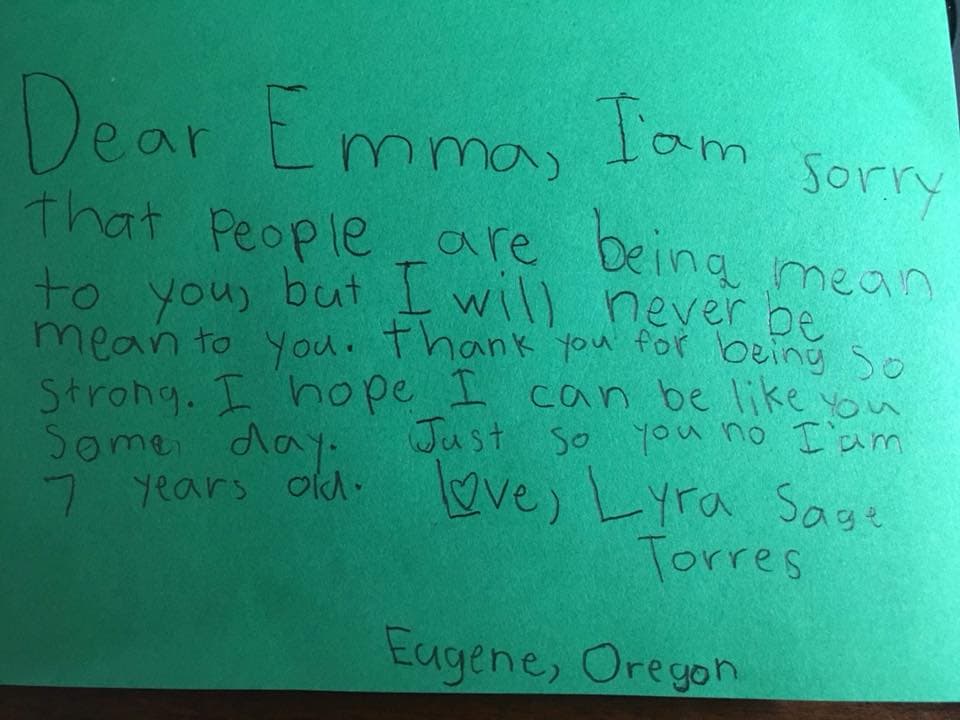 Dear Emma, I'am sorry
that people are being mean
to you, but I will never be
mean to you. Thank you for being so
strong. I hope I can be like you
some day. Just so you no I'am
7 years old. Love, Lyra Sage
Torres
Eugene, Oregon